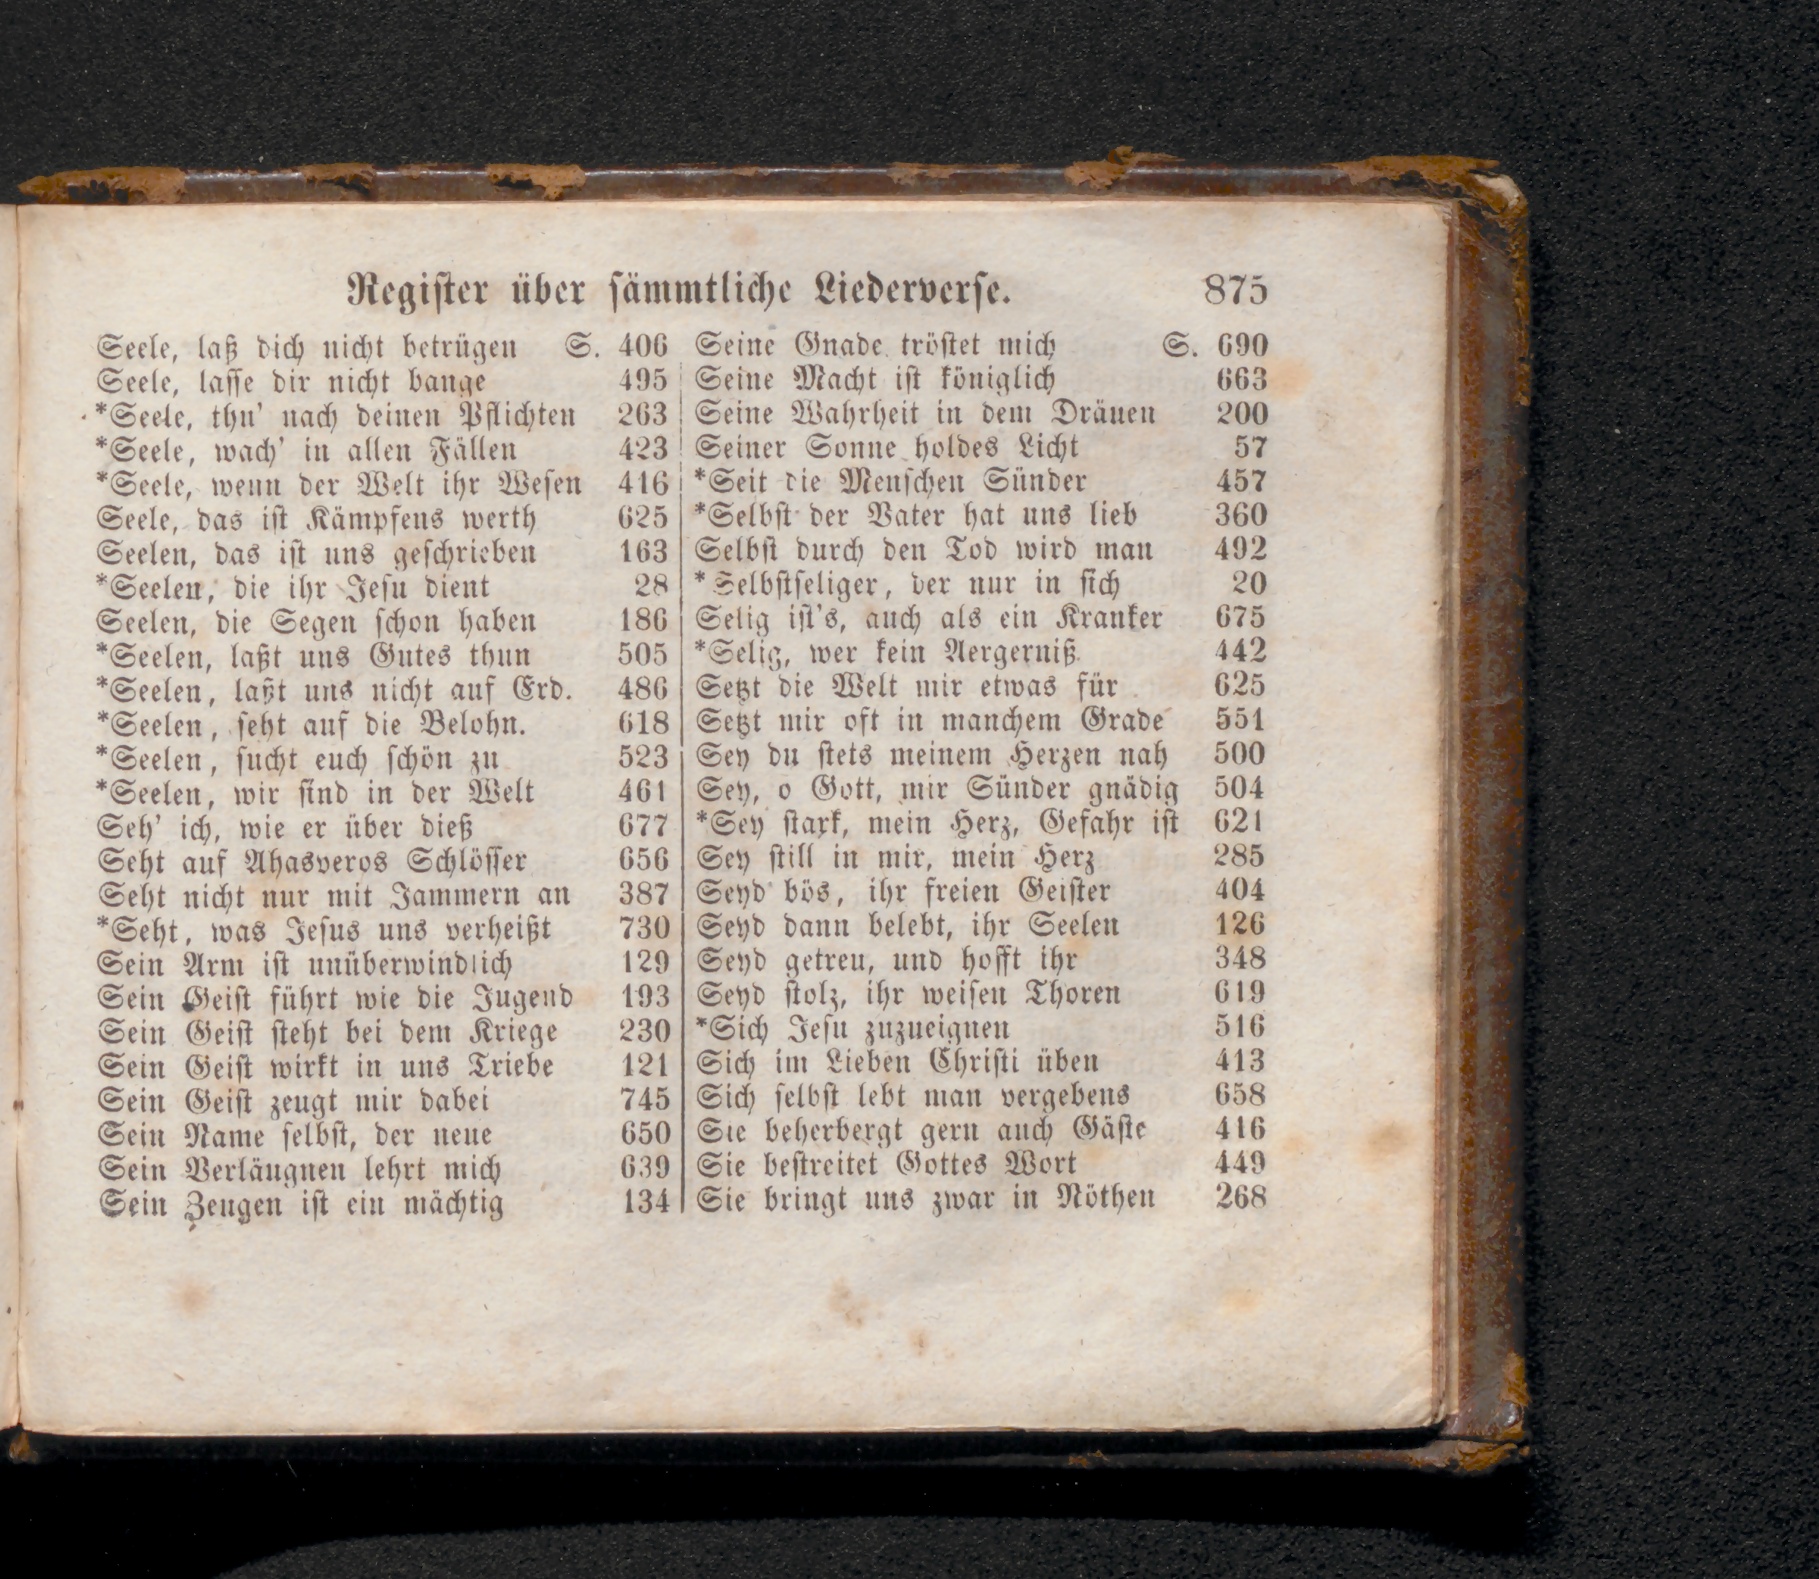 Register über sämmtliche Liederverse. 875
Seele, laß dich nicht betrügen S. 406
Seele, lasse dir nicht bange 495
*Seele, thu' nach deinen Pflichten 263
*Seele, wach' in allen Fällen 423
*Seele, wenn der Welt ihr Wesen 416
Seele, das ist Kämpfens werth 625
Seelen, das ist uns geschrieben 163
*Seelen, die ihr Jesu dient 28
Seelen, die Segen schon haben 186
*Seelen, laßt uns Gutes thun 505
*Seelen, laßt uns nicht auf Erd. 486
*Seelen, seht auf die Belohn. 618
*Seelen, sucht euch schön zu 523
*Seelen, wir sind in der Welt 461
Seh' ich, wie er über dieß 677
Seht auf Ahasveros Schlösser 656
Seht nicht nur mit Jammern an 387
*Seht, was Jesus uns verheißt 730
Sein Arm ist unüberwindlich 129
Sein Geist führt wie die Jugend 193
Sein Geist steht bei dem Kriege 230
Sein Geist wirkt in uns Triebe 121
Sein Geist zeugt mir dabei 745
Sein Name selbst, der neue 650
Sein Verläugnen lehrt mich 639
Sein Zeugen ist ein mächtig 134
Seine Gnade tröstet mich S. 690
Seine Macht ist königlich 663
Seine Wahrheit in dem Dräuen 200
Seiner Sonne holdes Licht 57
*Seit die Menschen Sünder 457
*Selbst der Vater hat uns lieb 360
Selbst durch den Tod wird man 492
*Selbstseliger, der nur in sich 20
Selig ist's, auch als ein Kranker 675
*Selig, wer kein Aergerniß 442
Setzt die Welt mir etwas für 625
Setzt mir oft in manchem Grade 551
Sey du stets meinem Herzen nah 500
Sey, o Gott, mir Sünder gnädig 504
*Sey stark, mein Herz, Gefahr ist 621
Sey still in mir, mein Herz 285
Seyd bös, ihr freien Geister 404
Seyd dann belebt, ihr Seelen 126
Seyd getreu, und hofft ihr 348
Seyd stolz, ihr weisen Thoren 619
*Sich Jesu zuzueignen 516
Sich im Lieben Christi üben 413
Sich selbst lebt man vergebens 658
Sie beherbergt gern auch Gäste 416
Sie bestreitet Gottes Wort 449
Sie bringt uns zwar in Nöthen 268